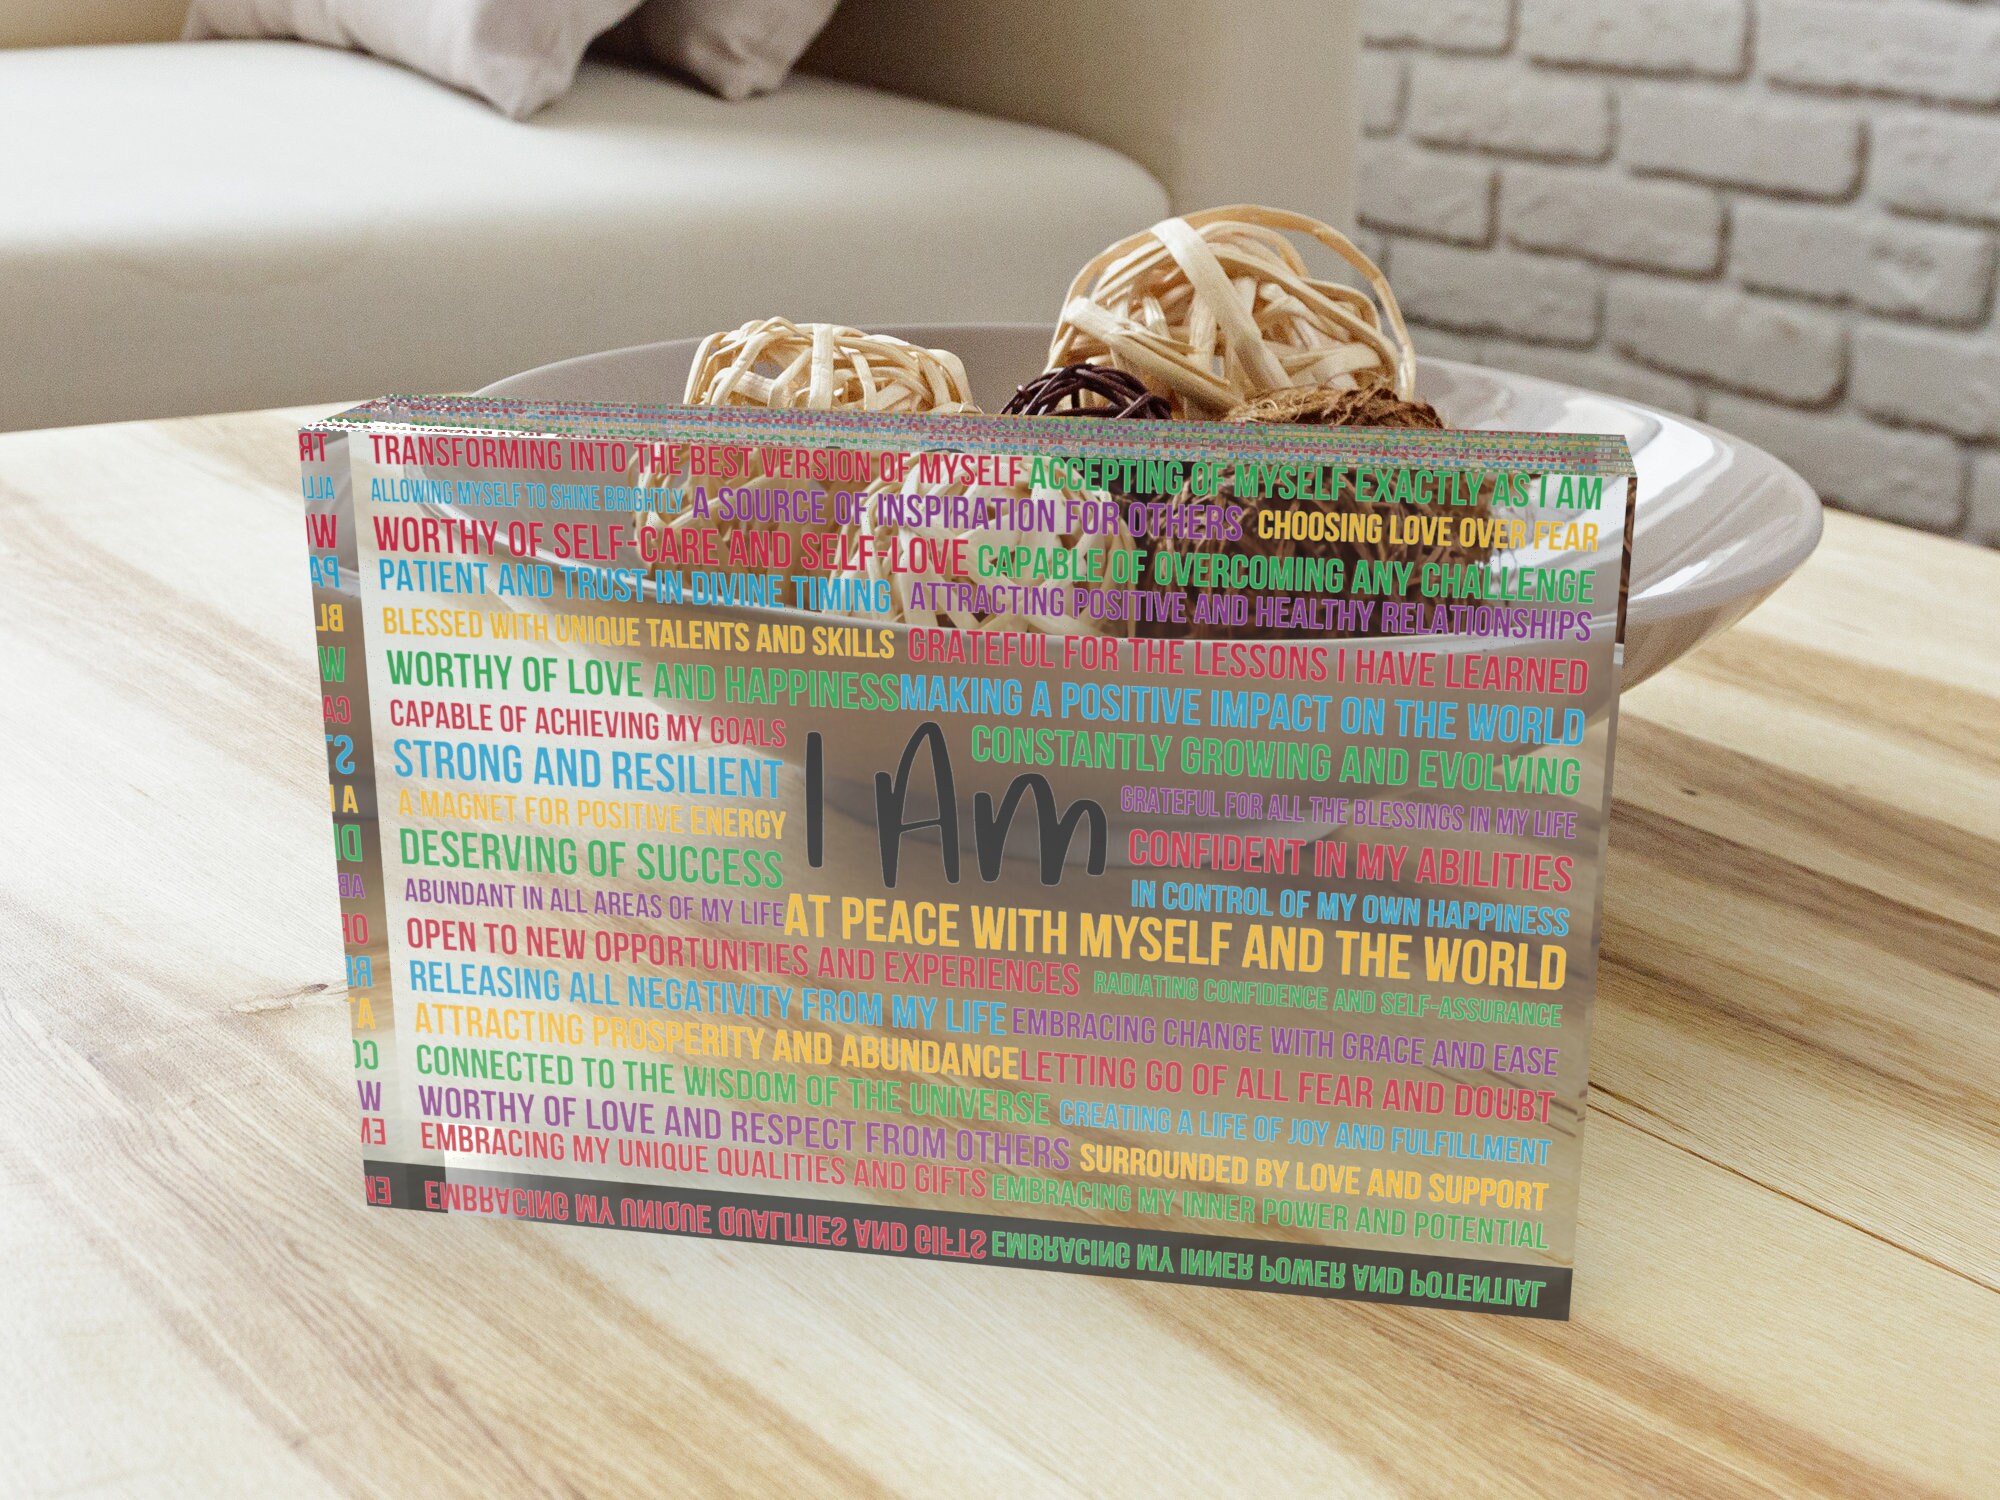 TRANSFORMING INTO THE BEST VERSION OF MYSELF ACCEPTING OF MYSELF EXACTLY AS I AM
ALLOWING MYSELF TO SHINE BRIGHTLY A SOURCE OF INSPIRATION FOR OTHERS CHOOSING LOVE OVER FEAR
WORTHY OF SELF-CARE AND SELF-LOVE CAPABLE OF OVERCOMING ANY CHALLENGE
PATIENT AND TRUST IN DIVINE TIMING ATTRACTING POSITIVE AND HEALTHY RELATIONSHIPS
BLESSED WITH UNIQUE TALENTS AND SKILLS GRATEFUL FOR THE LESSONS I HAVE LEARNED
WORTHY OF LOVE AND HAPPINESS MAKING A POSITIVE IMPACT ON THE WORLD
CAPABLE OF ACHIEVING MY GOALS CONSTANTLY GROWING AND EVOLVING
STRONG AND RESILIENT
I Am
A MAGNET FOR POSITIVE ENERGY GRATEFUL FOR ALL THE BLESSINGS IN MY LIFE
DESERVING OF SUCCESS CONFIDENT IN MY ABILITIES
ABUNDANT IN ALL AREAS OF MY LIFE IN CONTROL OF MY OWN HAPPINESS
AT PEACE WITH MYSELF AND THE WORLD
OPEN TO NEW OPPORTUNITIES AND EXPERIENCES RADIATING CONFIDENCE AND SELF-ASSURANCE
RELEASING ALL NEGATIVITY FROM MY LIFE EMBRACING CHANGE WITH GRACE AND EASE
ATTRACTING PROSPERITY AND ABUNDANCE LETTING GO OF ALL FEAR AND DOUBT
CONNECTED TO THE WISDOM OF THE UNIVERSE CREATING A LIFE OF JOY AND FULFILLMENT
WORTHY OF LOVE AND RESPECT FROM OTHERS SURROUNDED BY LOVE AND SUPPORT
EMBRACING MY UNIQUE QUALITIES AND GIFTS EMBRACING MY INNER POWER AND POTENTIAL